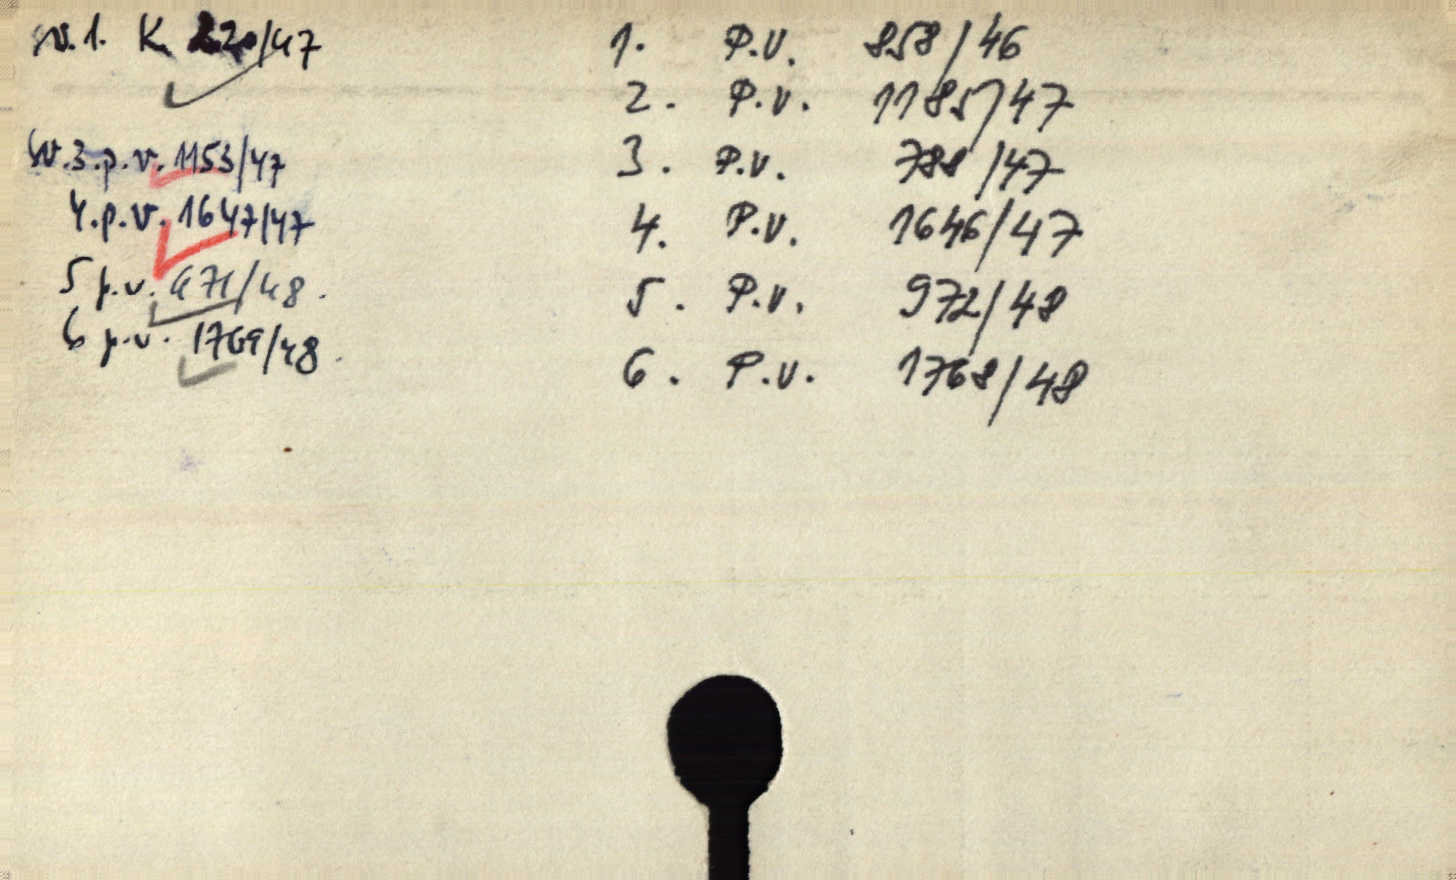 sv. 1. K. 220/47
sv. 3. p. v. 1153/47
4. p. v. 1647/47
5 p. v. 971/48.
6 p. v. 1769/48.
1. P.V. 858/46
2. P.V. 1185/47
3. P.V. 788/47
4. P.V. 1646/47
5. P.V. 972/48
6. P.V. 1768/48